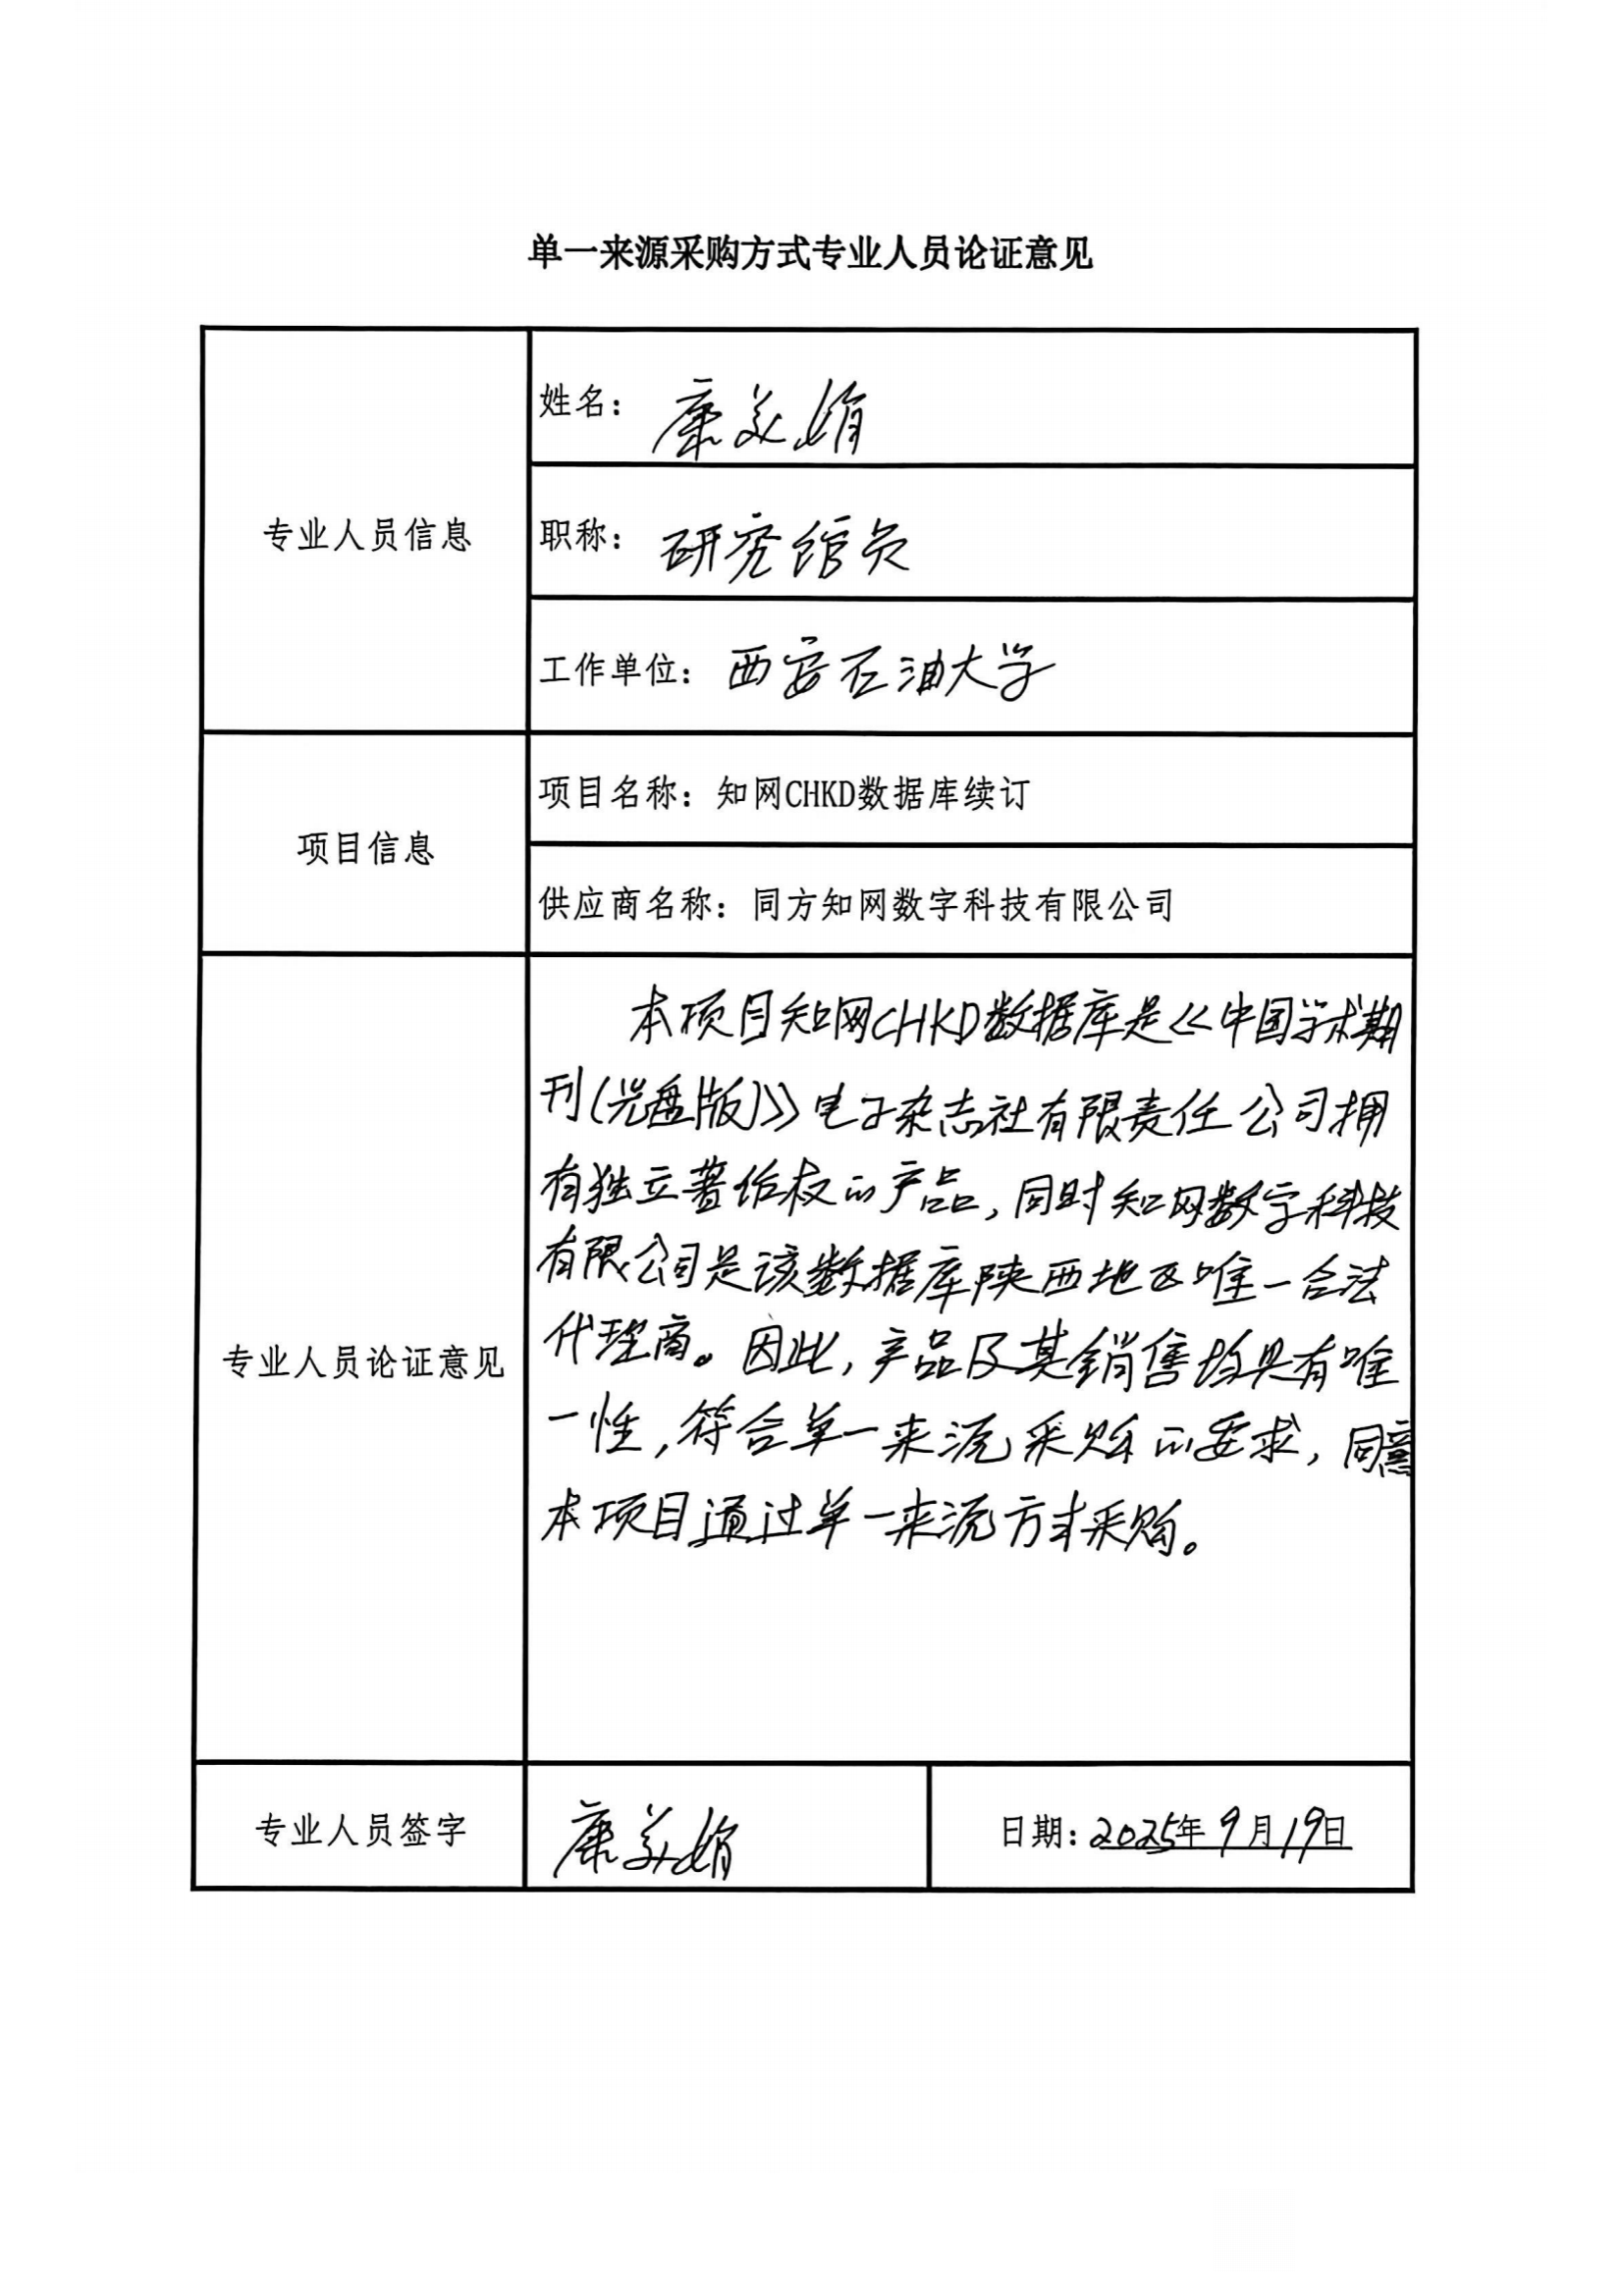 单一来源采购方式专业人员论证意见
专业人员信息
姓名：康美娟
职称：研究馆员
工作单位：西安石油大学
项目信息
项目名称：知网CHKD数据库续订
供应商名称：同方知网数字科技有限公司
专业人员论证意见
本项目知网CHKD数据库是《中国学术期
刊(光盘版)》电子杂志社有限责任公司拥
有独立著作权的产品,同时知网数字科技
有限公司是该数据库陕西地区唯一合法
代理商。因此,产品及其销售均具有唯
一性,符合单一来源采购的要求,同意
本项目通过单一来源方式采购。
专业人员签字
康美娟
日期：2025年9月19日